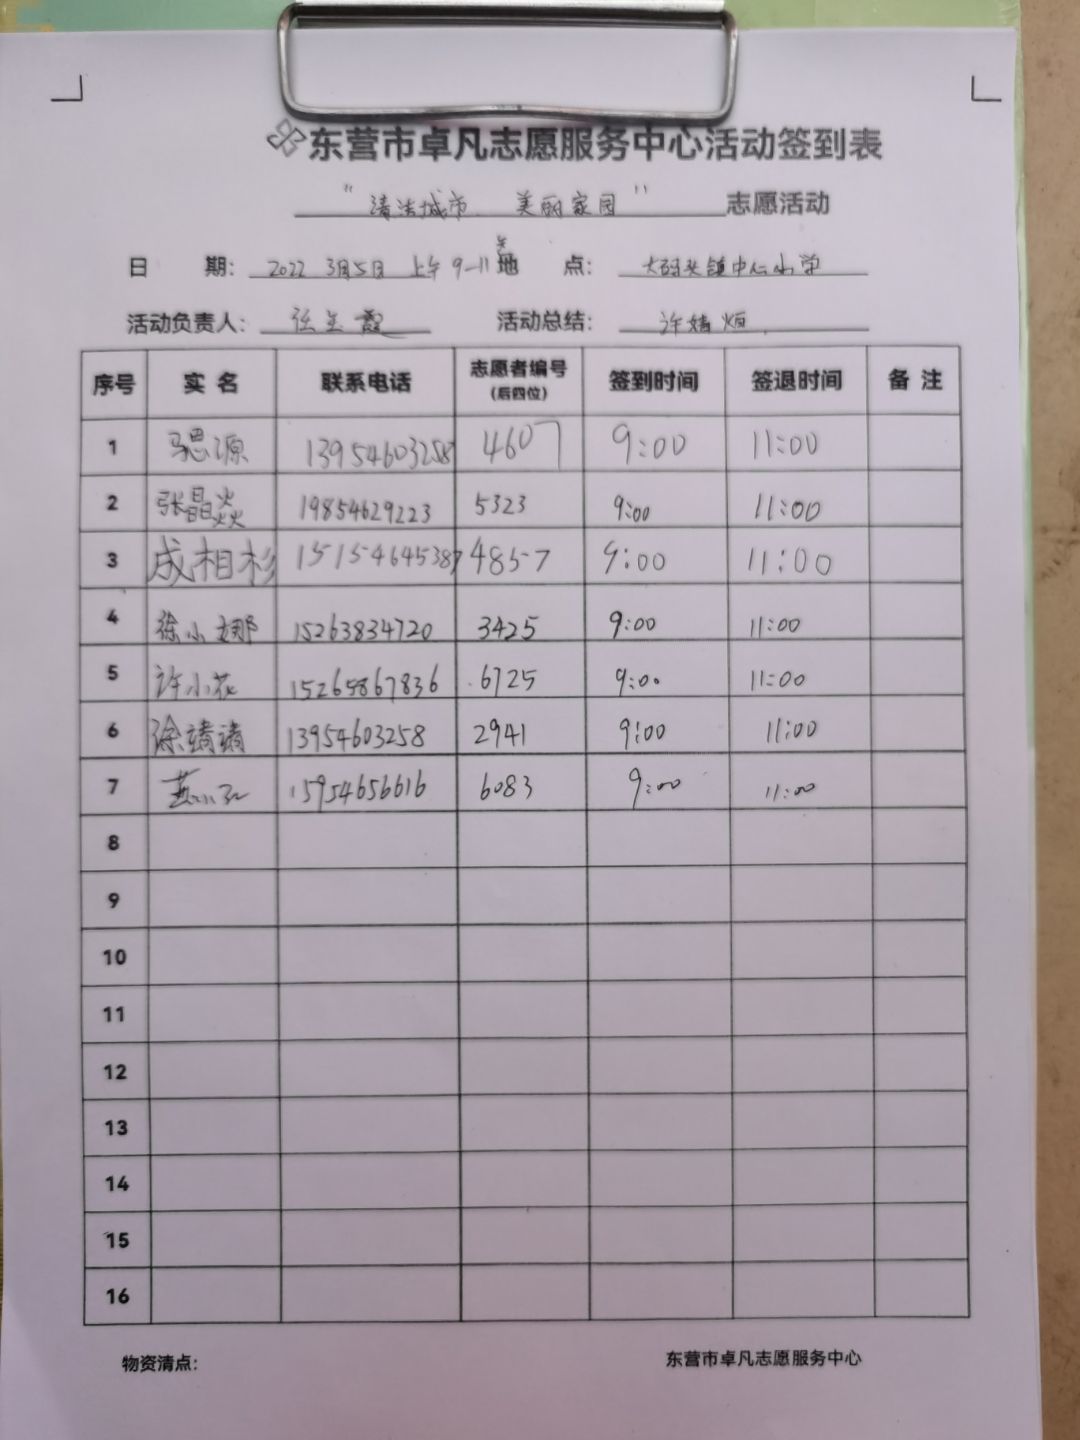 东营市卓凡志愿服务中心活动签到表
"清洁城市 美丽家园" 志愿活动
日 期: 2022 3月5日 上午9-11点 地 点: 大码头镇中心小学
活动负责人: 张玉霞 活动总结: 许婧烜
序号 实 名 联系电话 志愿者编号 (后四位) 签到时间 签退时间 备 注
1 思源 13954603258 4607 9:00 11:00
2 张晶焱 19854629223 5323 9:00 11:00
3 成相杉 15154645387 4857 9:00 11:00
4 徐小娜 15263834720 3425 9:00 11:00
5 许小花 15265867836 6725 9:00 11:00
6 徐靖 13954603258 2941 9:00 11:00
7 15954656616 6083 9:00 11:00
8
9
10
11
12
13
14
15
16
物资清点: 东营市卓凡志愿服务中心